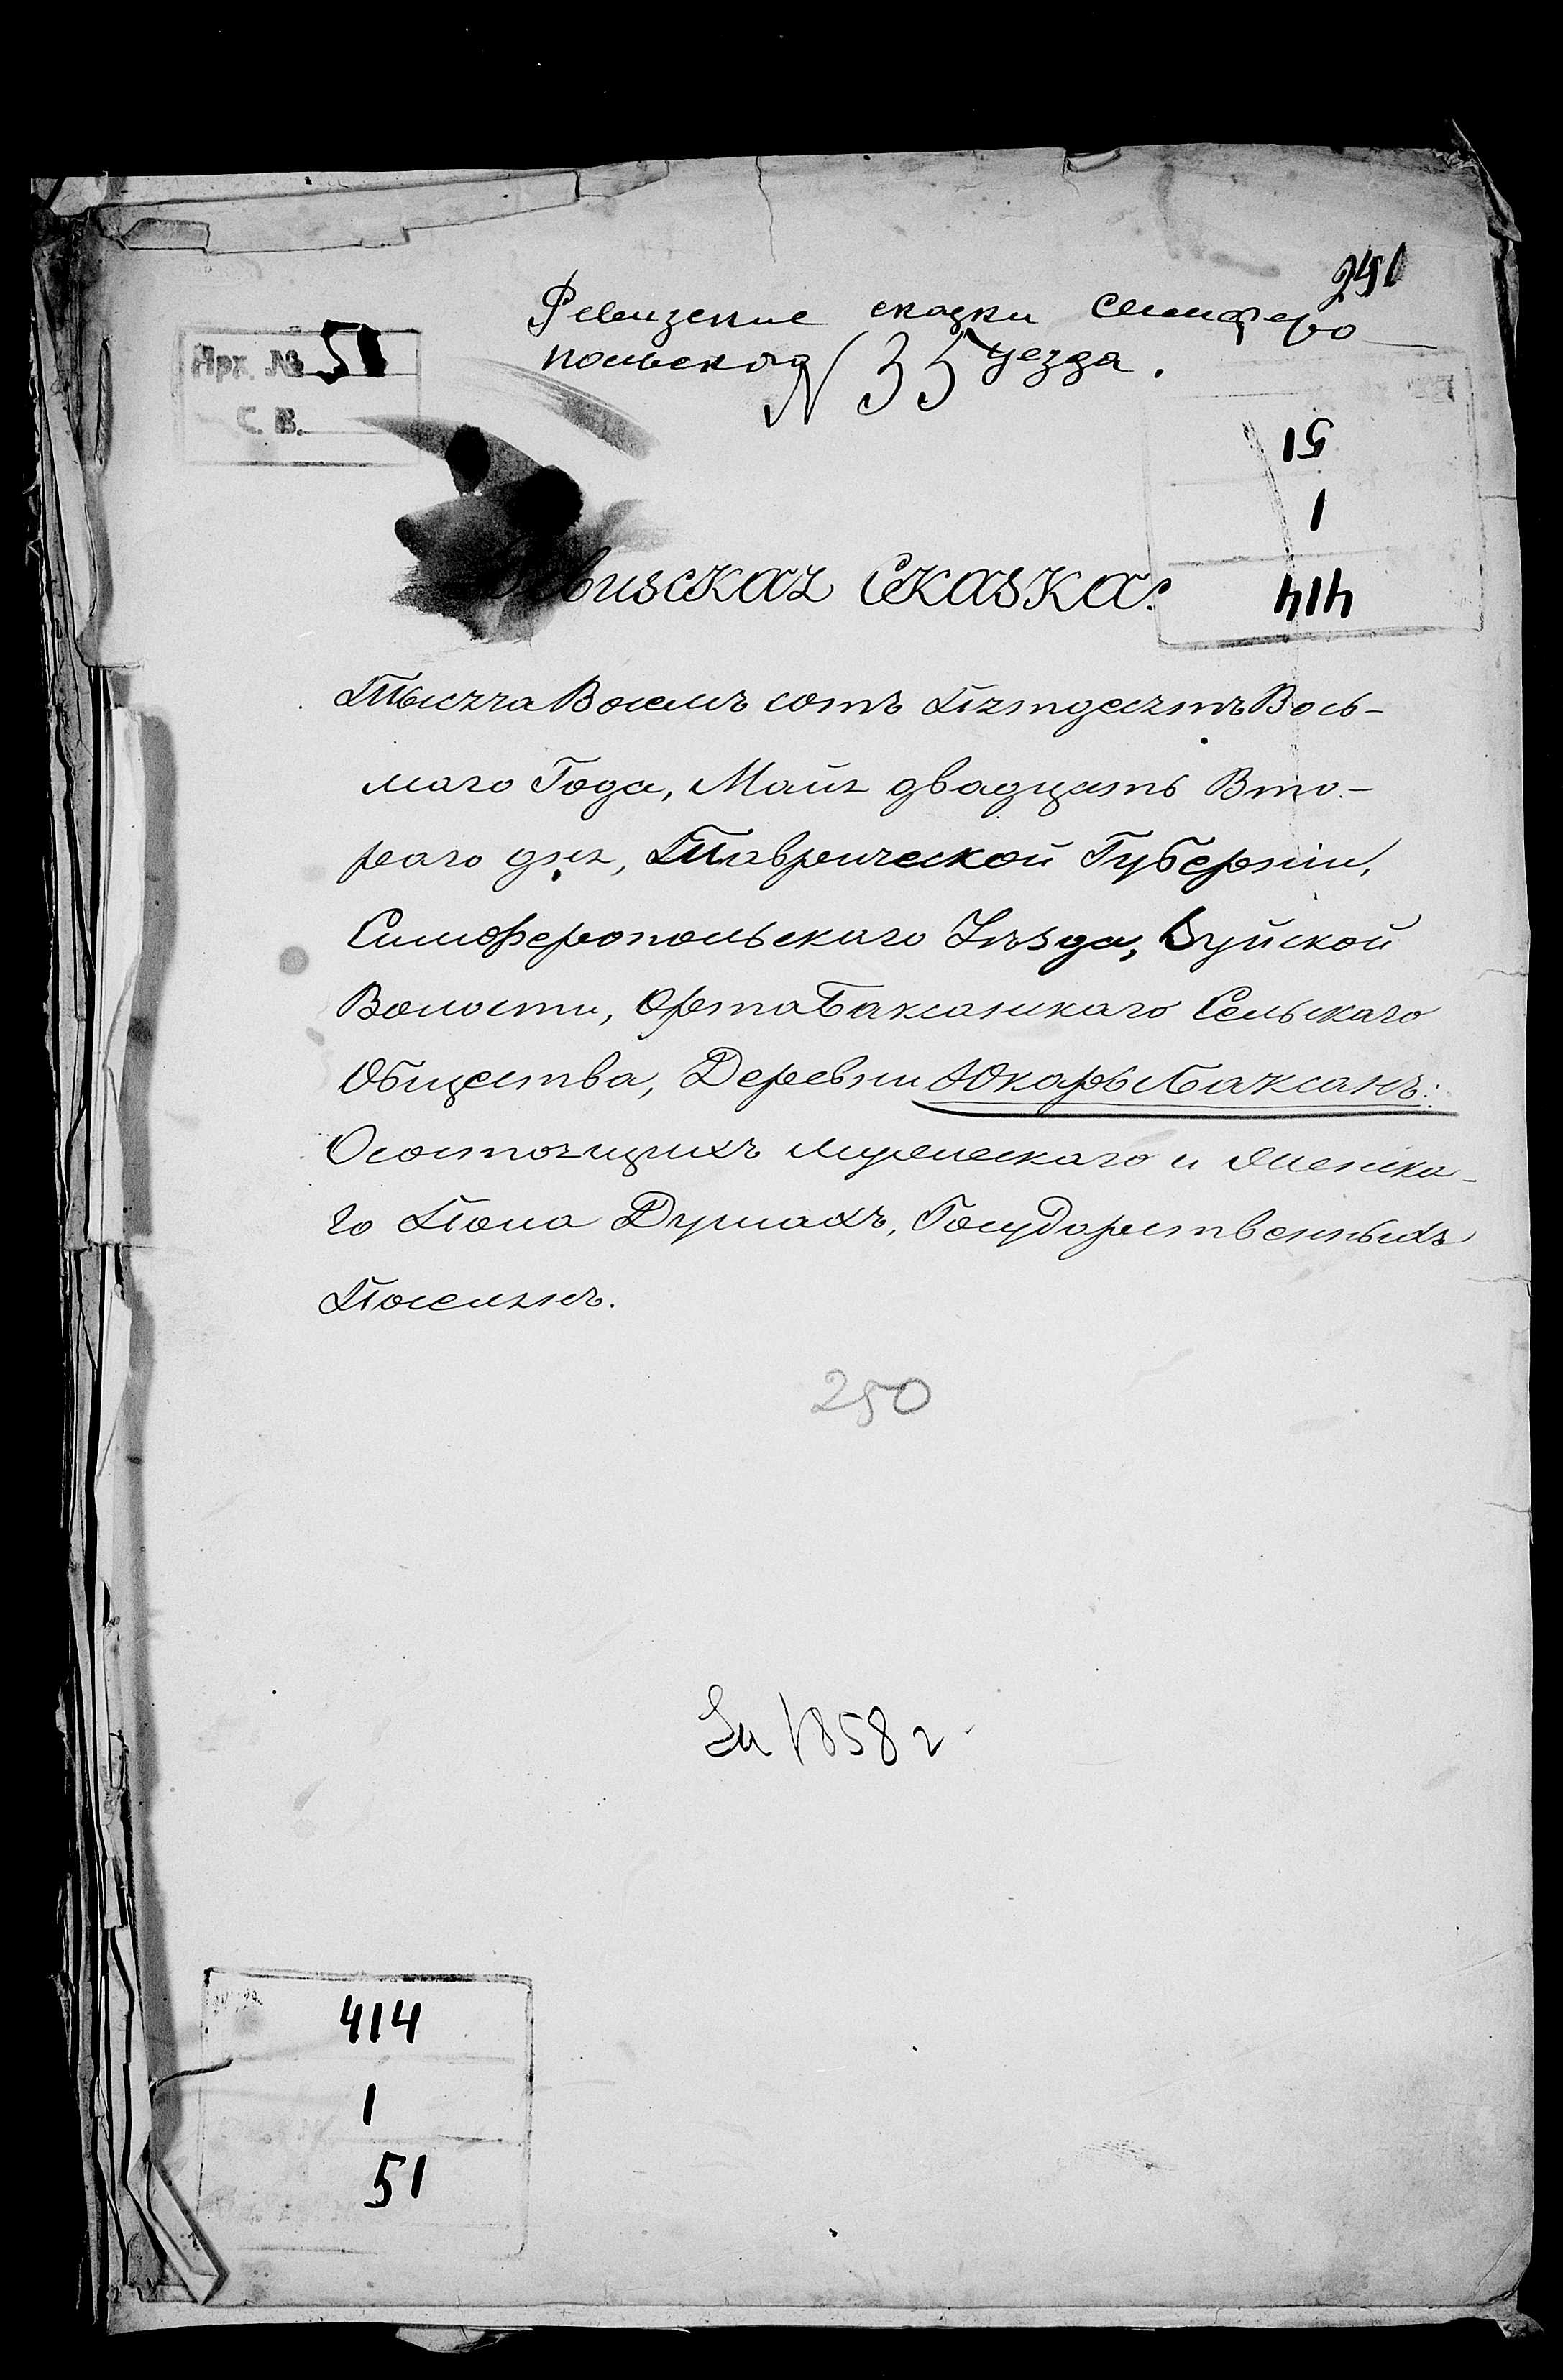 241
Ревизские сказки Симферо
польского уезда.
N 35
Арх. № 51
С. В.
51
1
414
Ревизская Сказка:
Тысяча Восемь сотъ Пятдесятъ Вось-
маго Года, Маія двадцать Вто-
раго дня, Таврической Губерніи,
Симферопольскаго Уѣзда, Зуйской
Волости, ОртаБаксанскаго Сельскаго
Общества, Деревни ЮкарыБаксанъ:
О состоящихъ мужескаго и женска-
го Пола Душахъ, Государственныхъ
Поселянъ.
250
За 1858 г
414
1
51